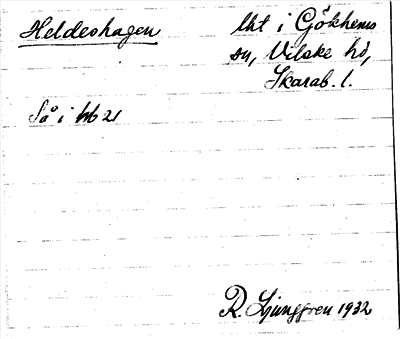 Heldeshagen
lht i Gökhems
sn, Vilske hd,
Skarab. l.
Så i hb 21
R. Ljunggren 1932